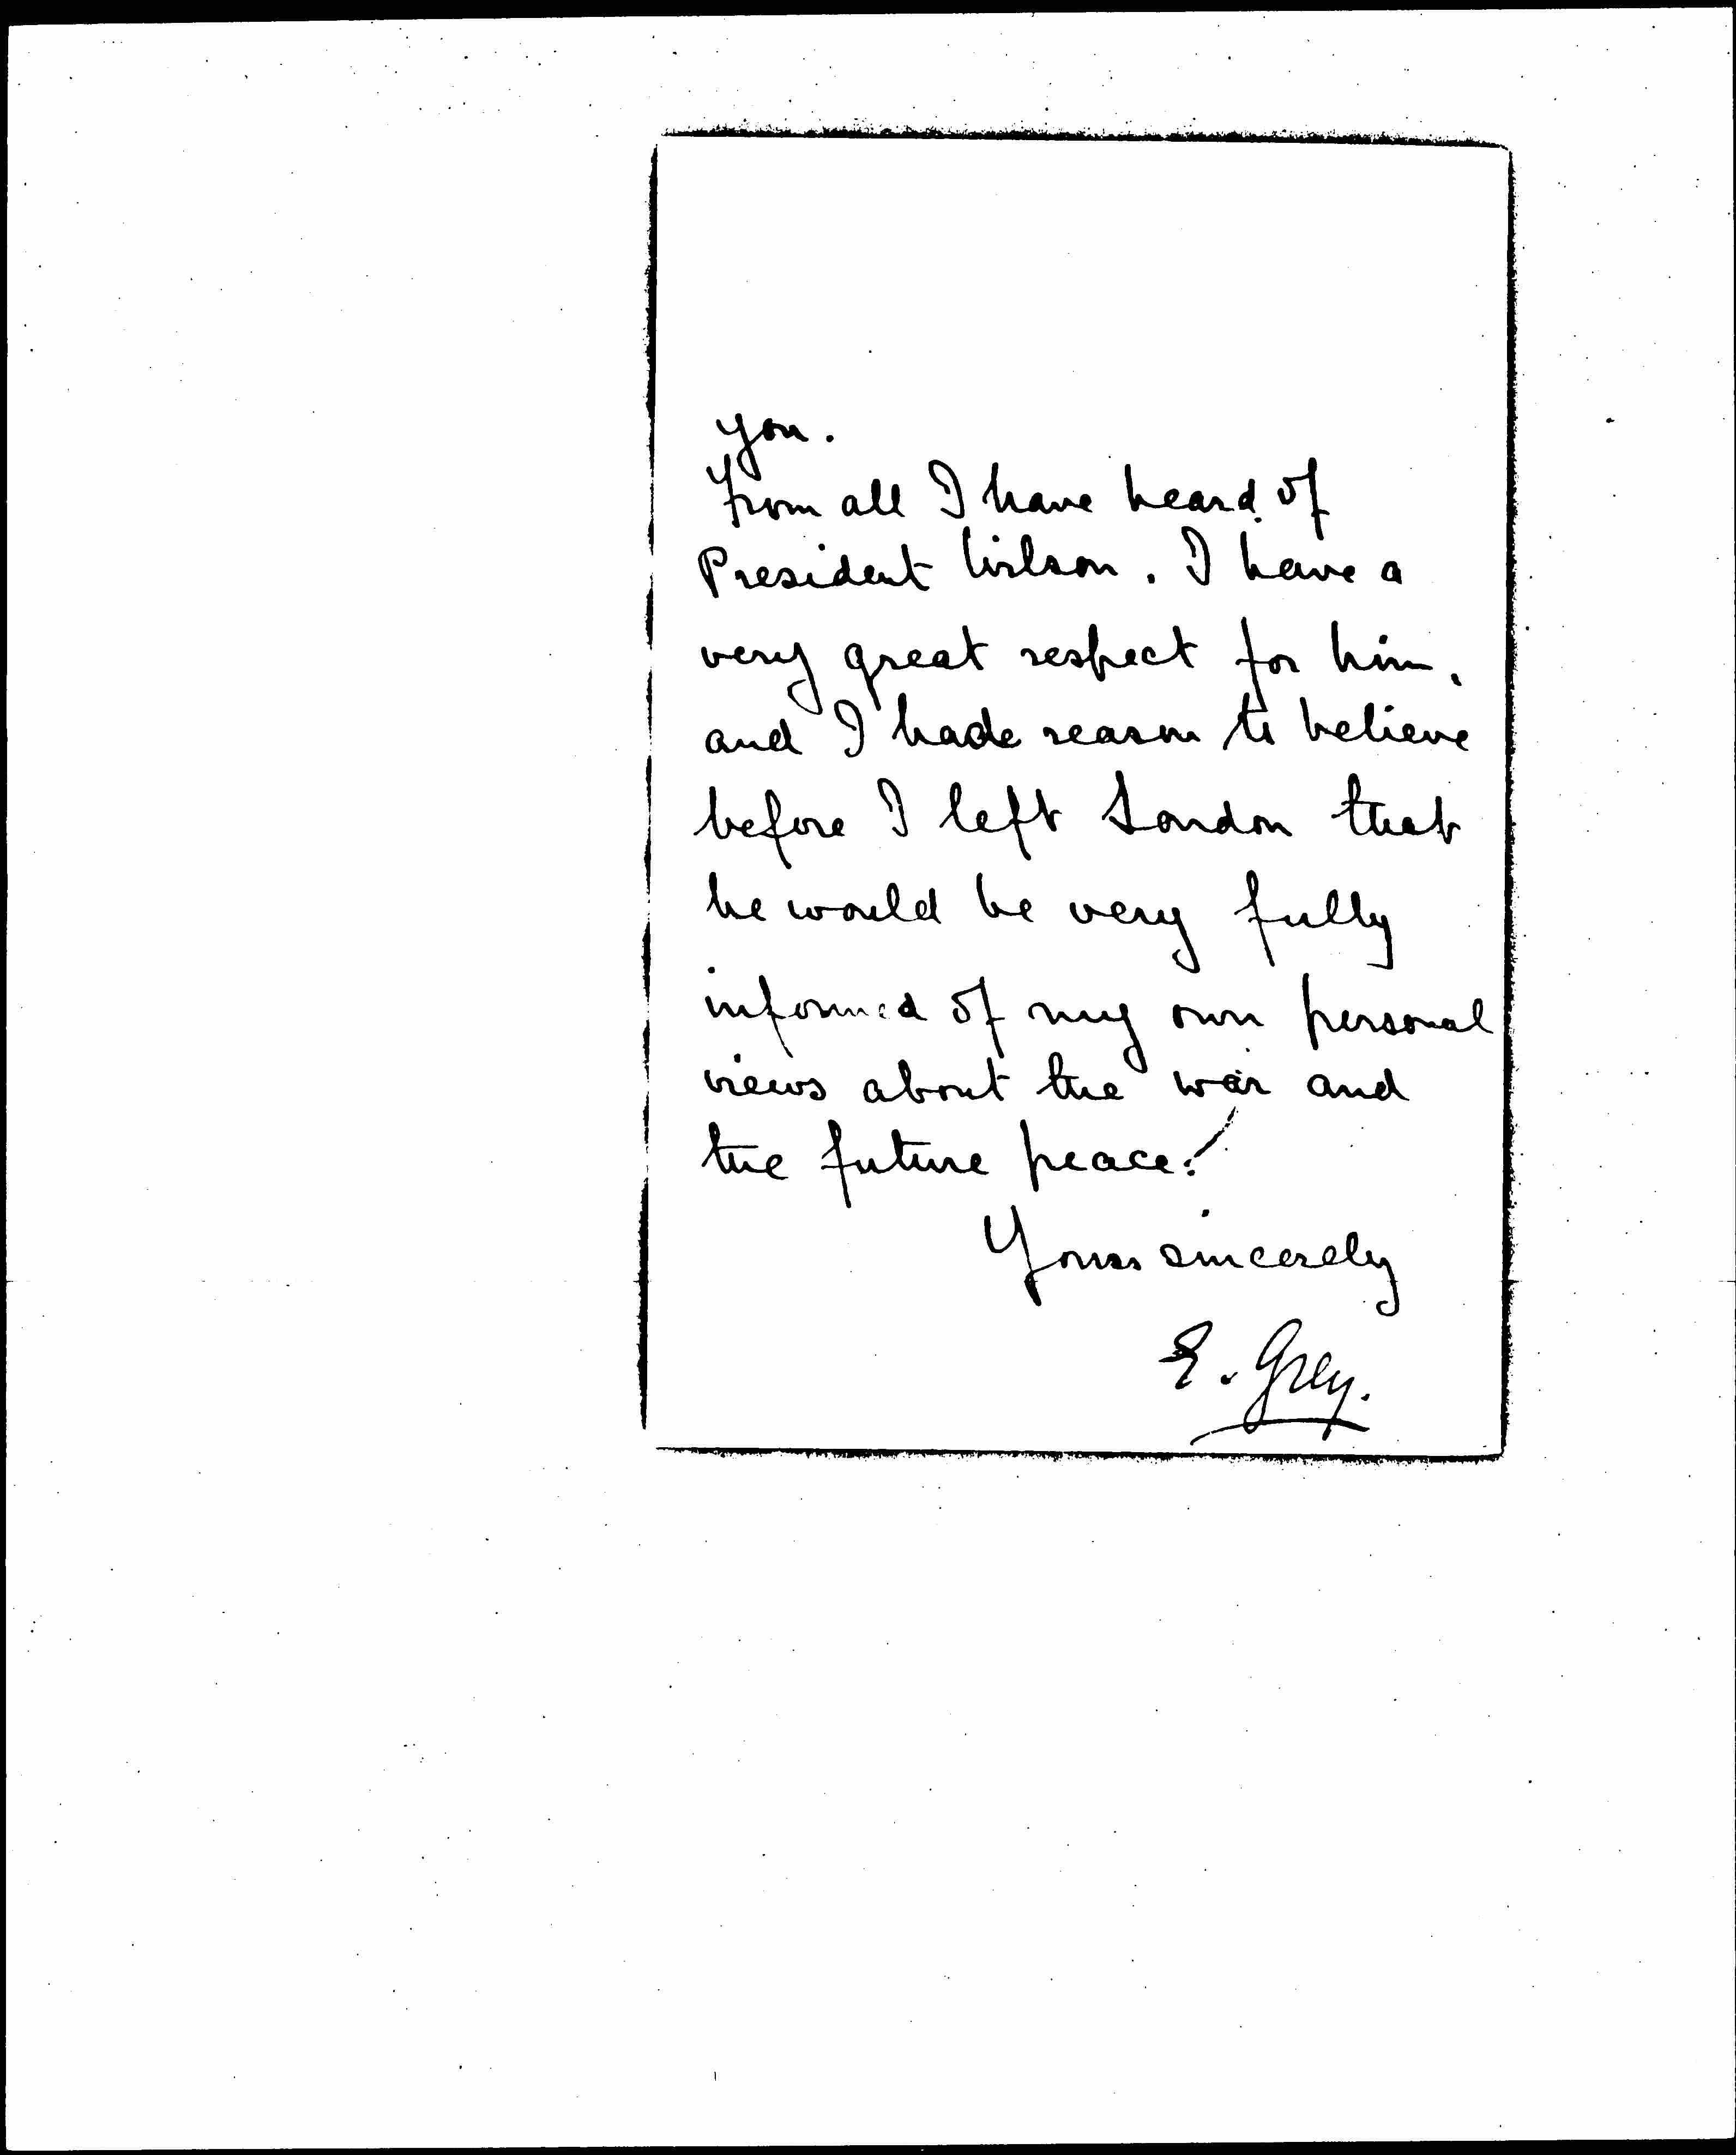 you.
From all I have heard of
President Wilson. I have a
very great respect for him,
and I had reason to believe
before I left London that
he would be very fully
informed of my own personal
views about the war and
the future peace.
Yours sincerely
E. Grey.